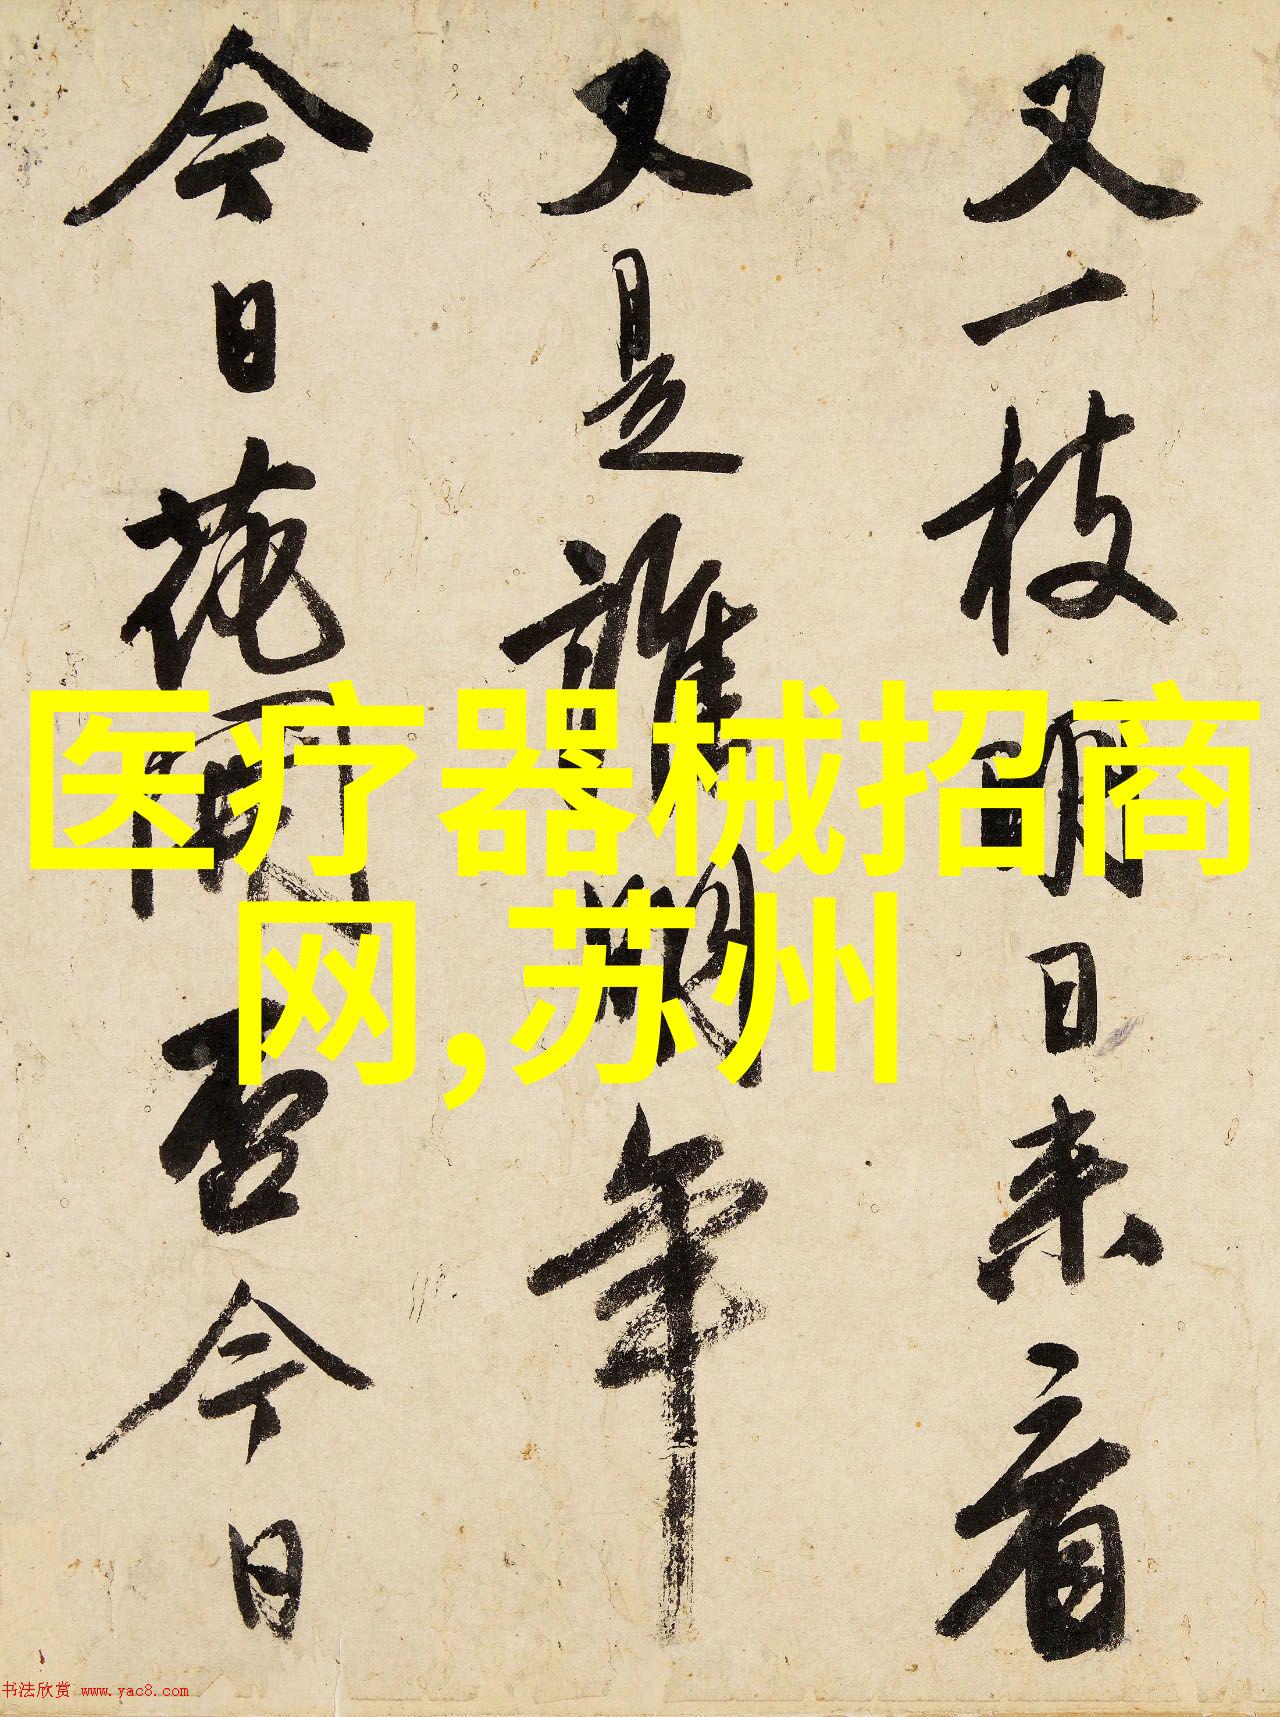 又一枝明日来看
又是誰明年
今日花開否今日
医疗器械招商
网,苏州
书法欣赏 www.yac8.com